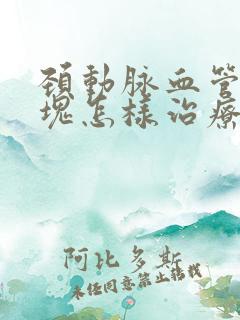 頸動脈血管
塊怎樣治療
阿比多斯
未经同意禁止转载